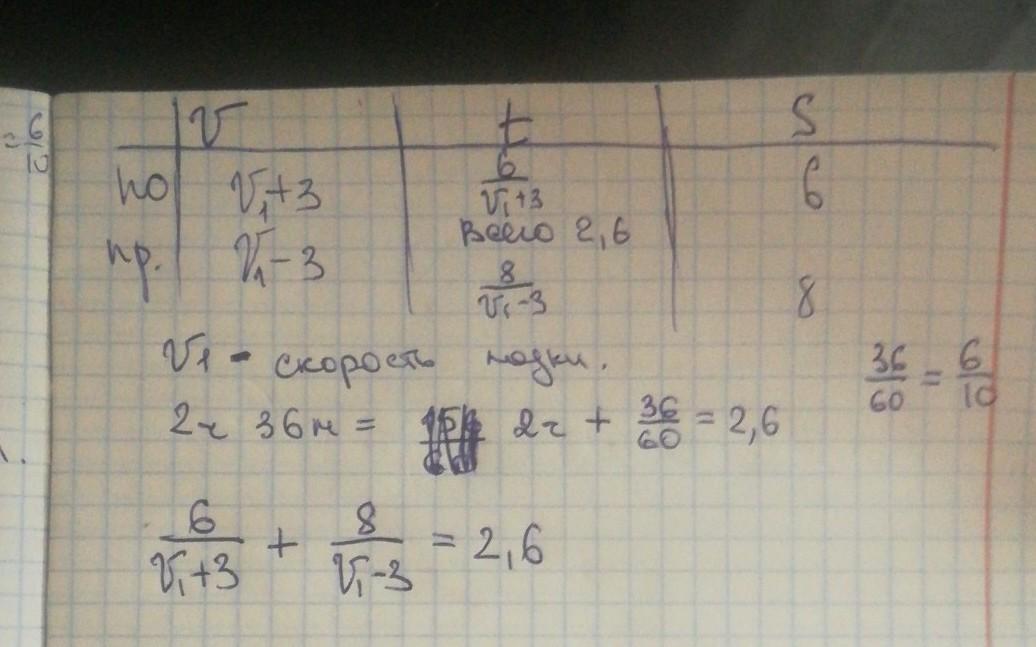 = 6/10
V t S
по V₁+3 6/(V₁+3) 6
Всего 2,6
пр. V₁-3 8/(V₁-3) 8
V1 - скорость лодки.
36/60 = 6/10
2ч 36м = 2ч + 36/60 = 2,6
6/(V₁+3) + 8/(V₁-3) = 2,6